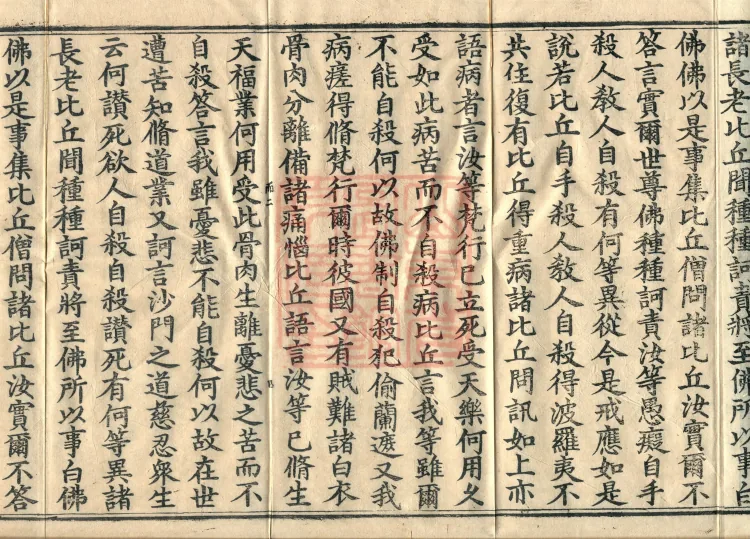 諸長老比丘聞種種訶責將至佛所以事白
佛佛以是事集比丘僧問諸比丘汝實爾不
答言實爾世尊佛種種訶責汝等愚癡自手
殺人教人自殺有何等異從今是戒應如是
說若比丘自手殺人教人自殺得波羅夷不
共住復有比丘得重病諸比丘問訊如上亦
語病者言汝等梵行已立死受天樂何用久
受如此病苦而不自殺病比丘言我等雖爾
不能自殺何以故佛制自殺犯偷蘭遮又我
病瘥得脩梵行爾時彼國又有賊難諸白衣
骨肉分離備諸痛惱比丘語言汝等已脩生
天福業何用受此骨肉生離憂悲之苦而不
自殺答言我雖憂悲不能自殺何以故在世
遭苦知脩道業又訶言沙門之道慈忍衆生
云何讃死欲人自殺自殺讃死有何等異諸
長老比丘聞種種訶責將至佛所以事白佛
佛以是事集比丘僧問諸比丘汝實爾不答